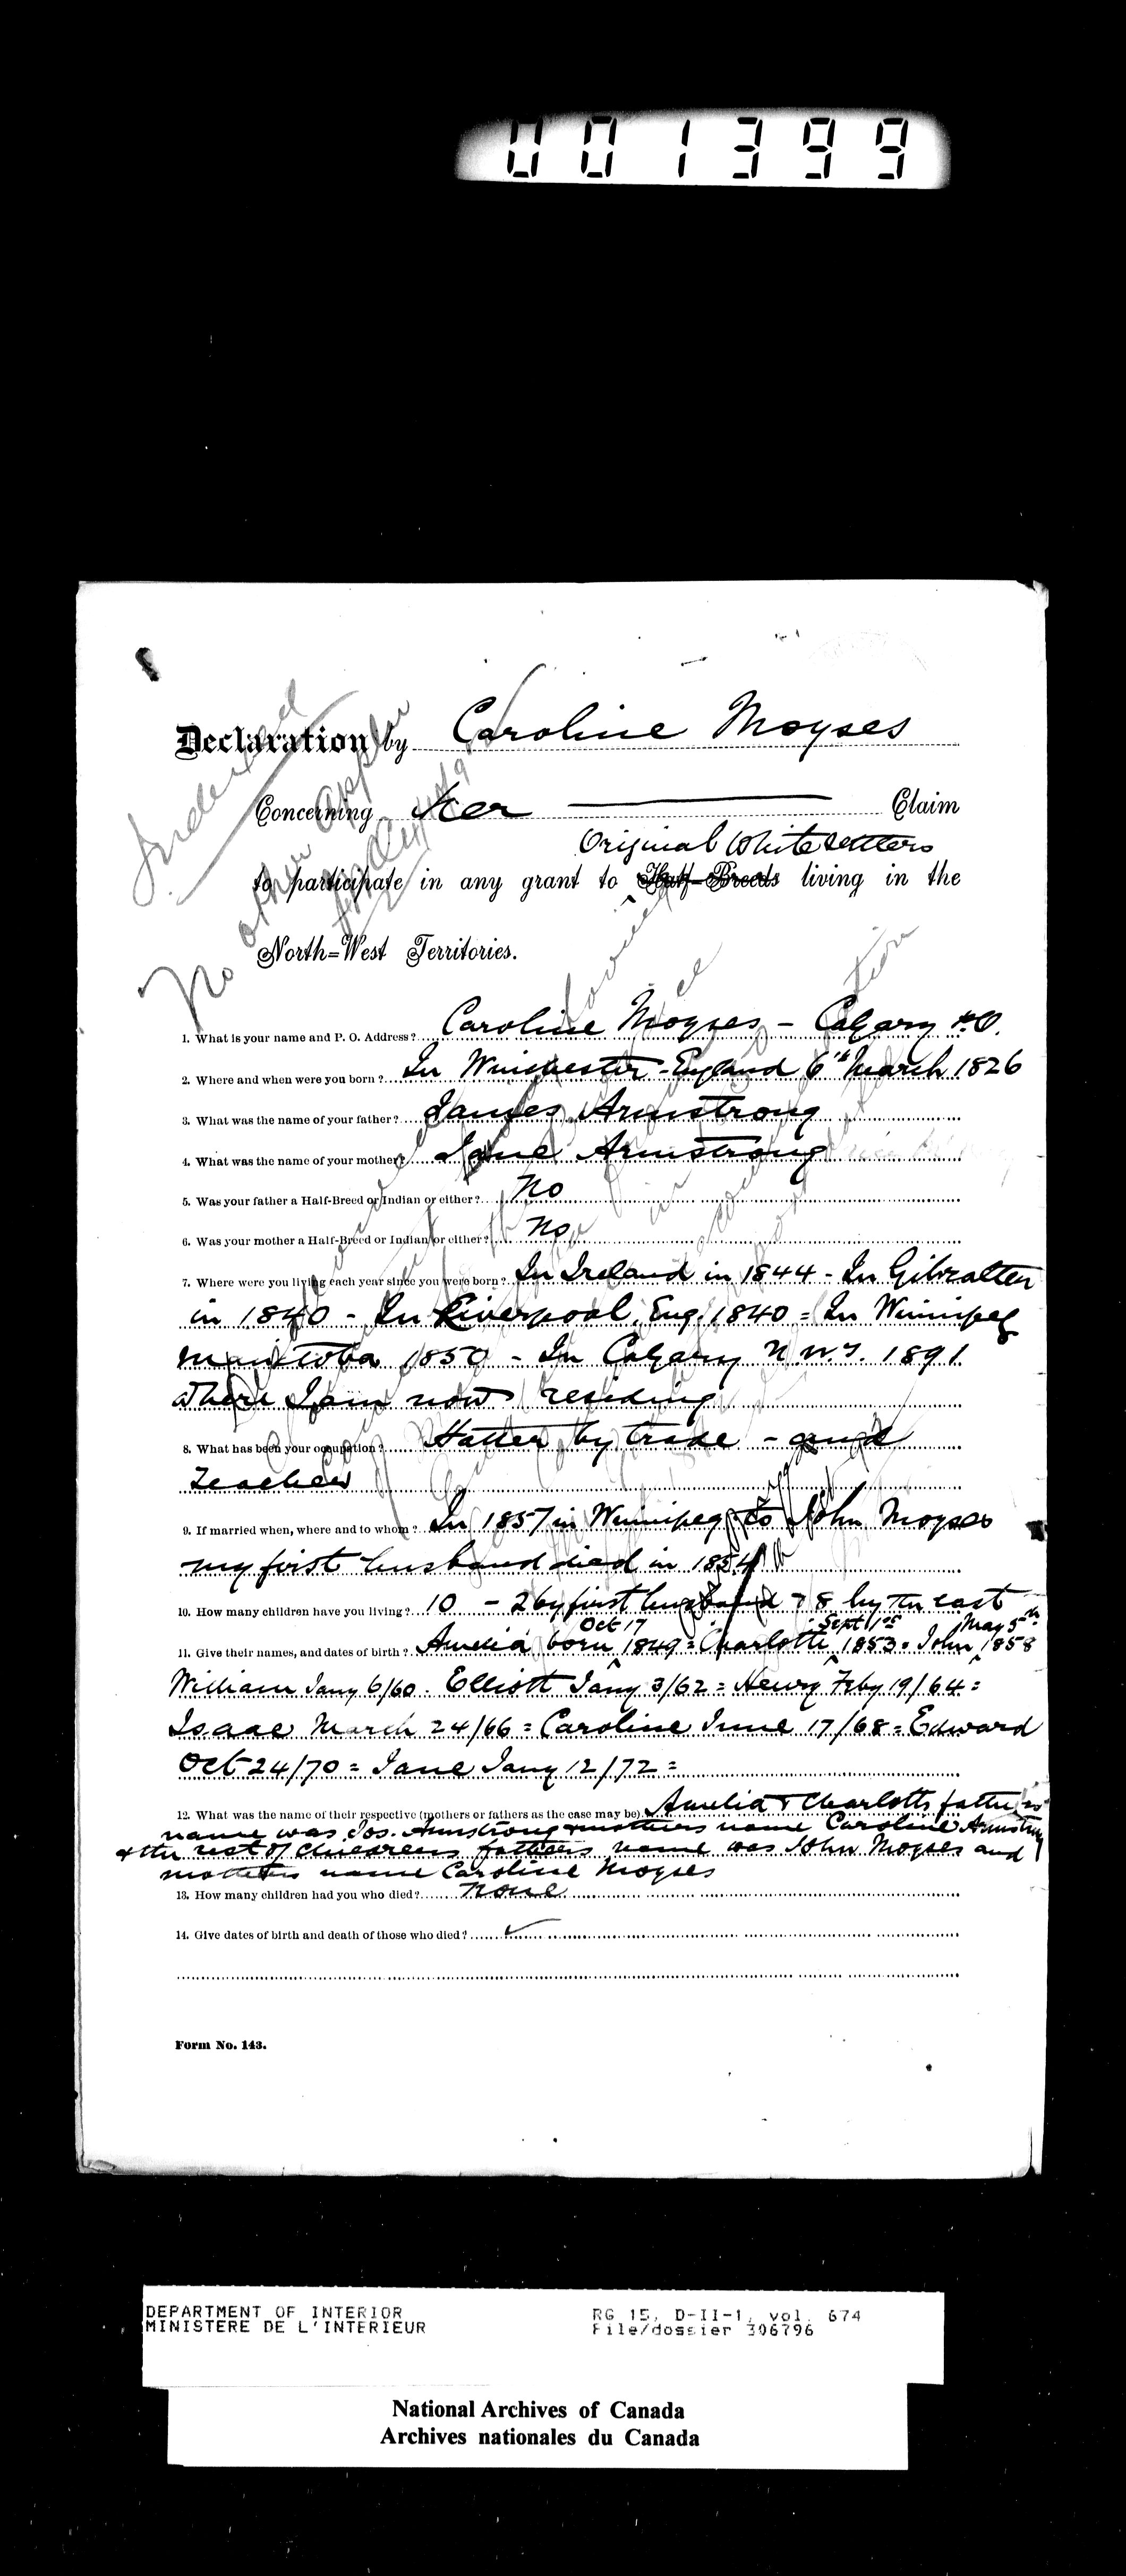 001399
Declaration by Caroline Moyses
Concerning Her Claim
Original White settlers
to participate in any grant to Half-Breeds living in the
North=West Territories.
Indexed
No other appln
1. What is your name and P. O. Address? Caroline Moyses - Calgary P.O.
2. Where and when were you born? In Winchester - England 6th March 1826
3. What was the name of your father? James Armstrong
4. What was the name of your mother? Jane Armstrong
5. Was your father a Half-Breed or Indian or either? No
6. Was your mother a Half-Breed or Indian or either? No
7. Where were you living each year since you were born? In Ireland in 1844 - In Gibralter
in 1840 - In Liverpool, Eng. 1840 = In Winnipeg
Manitoba 1850 - In Calgary N.W.T. 1891
where I am now residing
8. What has been your occupation? Hatter by trade - and
Teacher
9. If married when, where and to whom? In 1857 in Winnipeg to John Moyses
my first husband died in 1854
10. How many children have you living? 10 - 2 by first husband & 8 by the last
Oct 17 Sept 1st May 5th
11. Give their names, and dates of birth? Amelia born 1849 = Charlotte 1853 = John 1858
William Jany 6/60. Elliott Jany 3/62 = Henry Feby 19/64 =
Isaac March 24/66 = Caroline June 17/68 = Edward
Oct 24/70 = Jane Jany 12/72 =
12. What was the name of their respective (mothers or fathers as the case may be). Amelia & Charlotts father's
name was Jos. Armstrong & mothers name Caroline Armstrong
& the rest of childrens fathers name was John Moyses and
mothers name Caroline Moyses
13. How many children had you who died? none
14. Give dates of birth and death of those who died?
Form No. 143.
DEPARTMENT OF INTERIOR RG 15, D-II-1, vol. 674
MINISTERE DE L'INTERIEUR File/dossier 306796
National Archives of Canada
Archives nationales du Canada